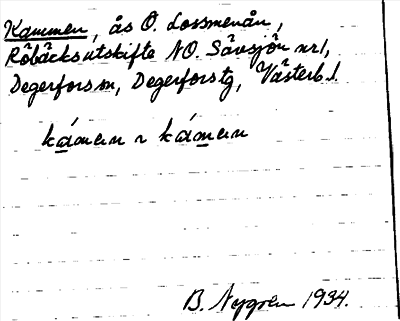 Kammen, ås Ö. Lossmenån,
Röbäcksutskifte NO. Sävsjön nr 1,
Degerfors sn, Degerfors tg, Västerb. l.
kámen r kámen
B. Nygren 1934.